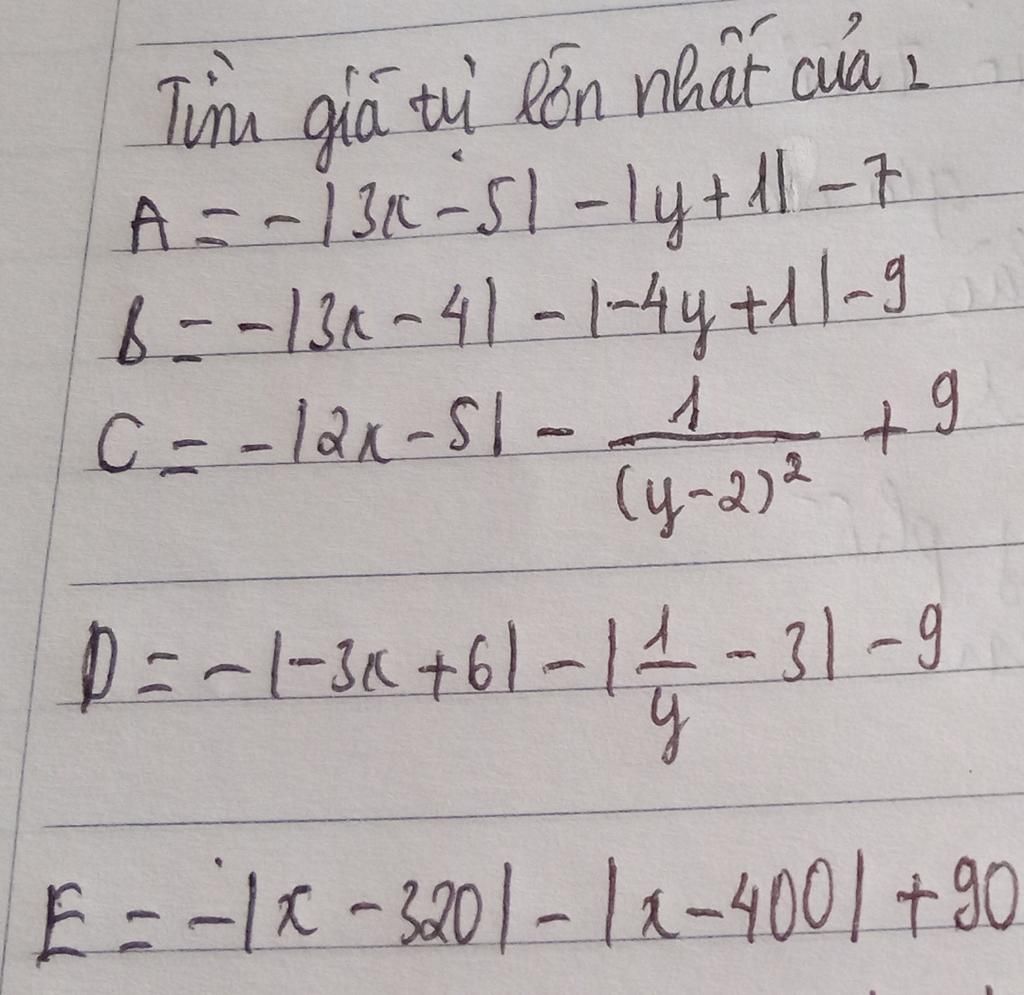 Tìm giá tị lớn nhất của :
A = -|3x - 5| - |y + 1| - 7
B = -|3x - 4| - |-4y + 1| - 9
C = -|2x - 5| - 1/(y-2)² + 9
D = -|-3x + 6| - |1/y - 3| - 9
E = -|x - 320| - |x - 400| + 90